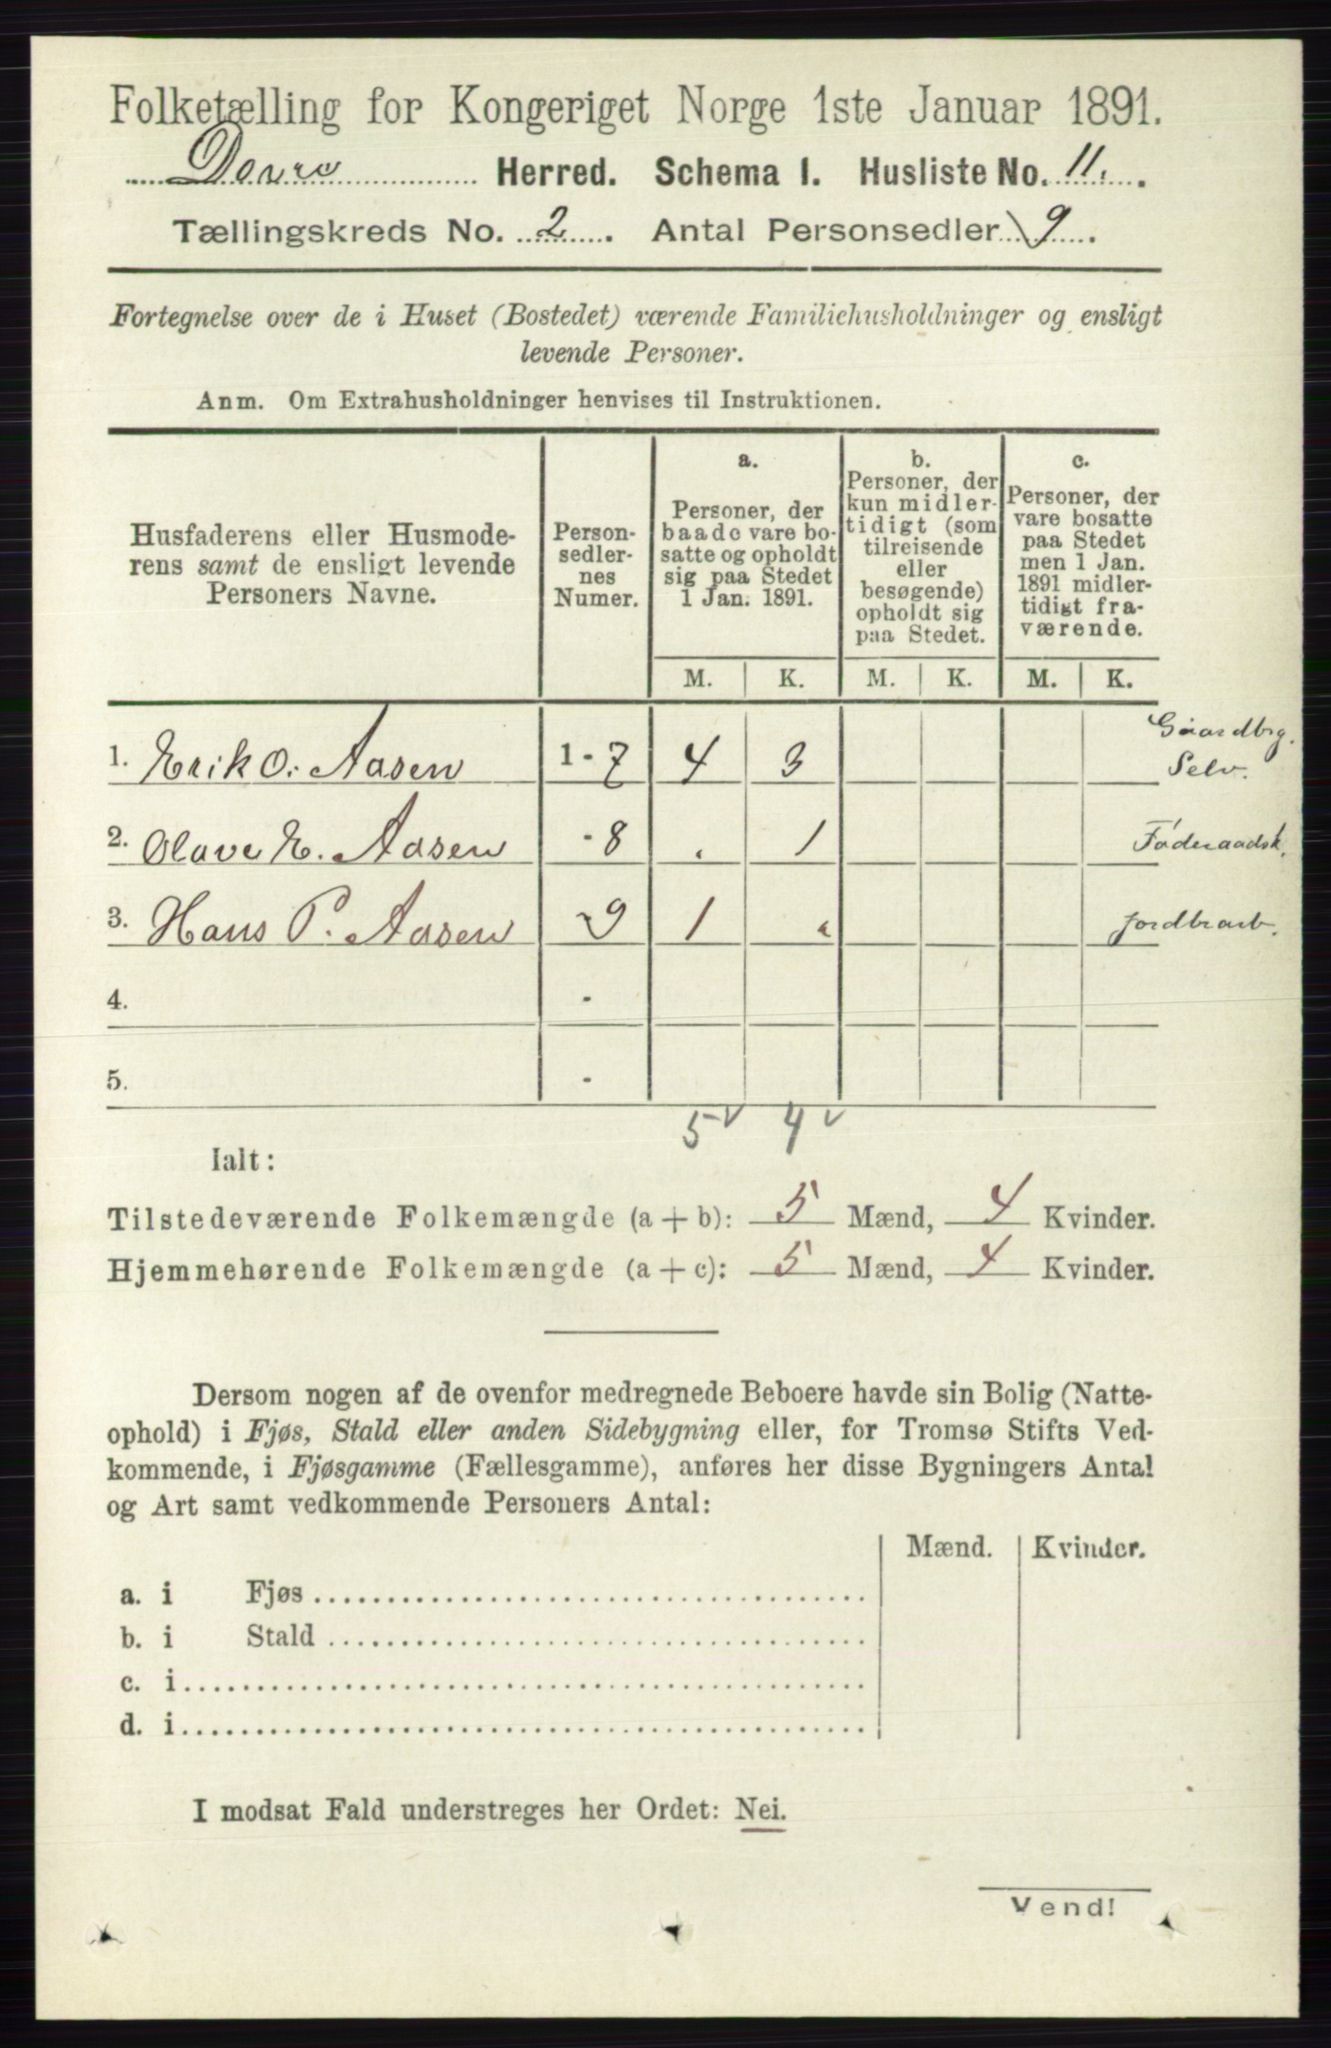 Folketælling for Kongeriget Norge 1ste Januar 1891.
Dovre Herred. Schema I. Husliste No. 11.
Tællingskreds No. 2. Antal Personsedler 9.
Fortegnelse over de i Huset (Bostedet) værende Familiehusholdninger og ensligt
levende Personer.
Anm. Om Extrahusholdninger henvises til Instruktionen.
Husfaderens eller Husmode-
rens samt de ensligt levende
Personers Navne.
Person-
sedler-
nes
Numer.
a.
Personer, der
baade vare bo-
satte og opholdt
sig paa Stedet
1 Jan. 1891.
b.
Personer, der
kun midler-
tidigt (som
tilreisende
eller
besøgende)
opholdt sig
paa Stedet.
c.
Personer, der
vare bosatte
paa Stedet
men 1 Jan.
1891 midler-
tidigt fra-
værende.
M. K. M. K. M. K.
1. Erik O. Aasen 1 - 7 4 3 Gaardbrg. Selv.
2. Olave E. Aasen - 8 . 1 Føderaadsk.
3. Hans P. Aasen - 9 1 . Jordbrarb.
4. -
5. -
5 4
Ialt:
Tilstedeværende Folkemængde (a + b): 5 Mænd, 4 Kvinder.
Hjemmehørende Folkemængde (a + c): 5 Mænd, 4 Kvinder.
Dersom nogen af de ovenfor medregnede Beboere havde sin Bolig (Natte-
ophold) i Fjøs, Stald eller anden Sidebygning eller, for Tromsø Stifts Ved-
kommende, i Fjøsgamme (Fællesgamme), anføres her disse Bygningers Antal
og Art samt vedkommende Personers Antal:
Mænd. Kvinder.
a. i Fjøs
b. i Stald
c. i
d. i
I modsat Fald understreges her Ordet: Nei.
Vend!